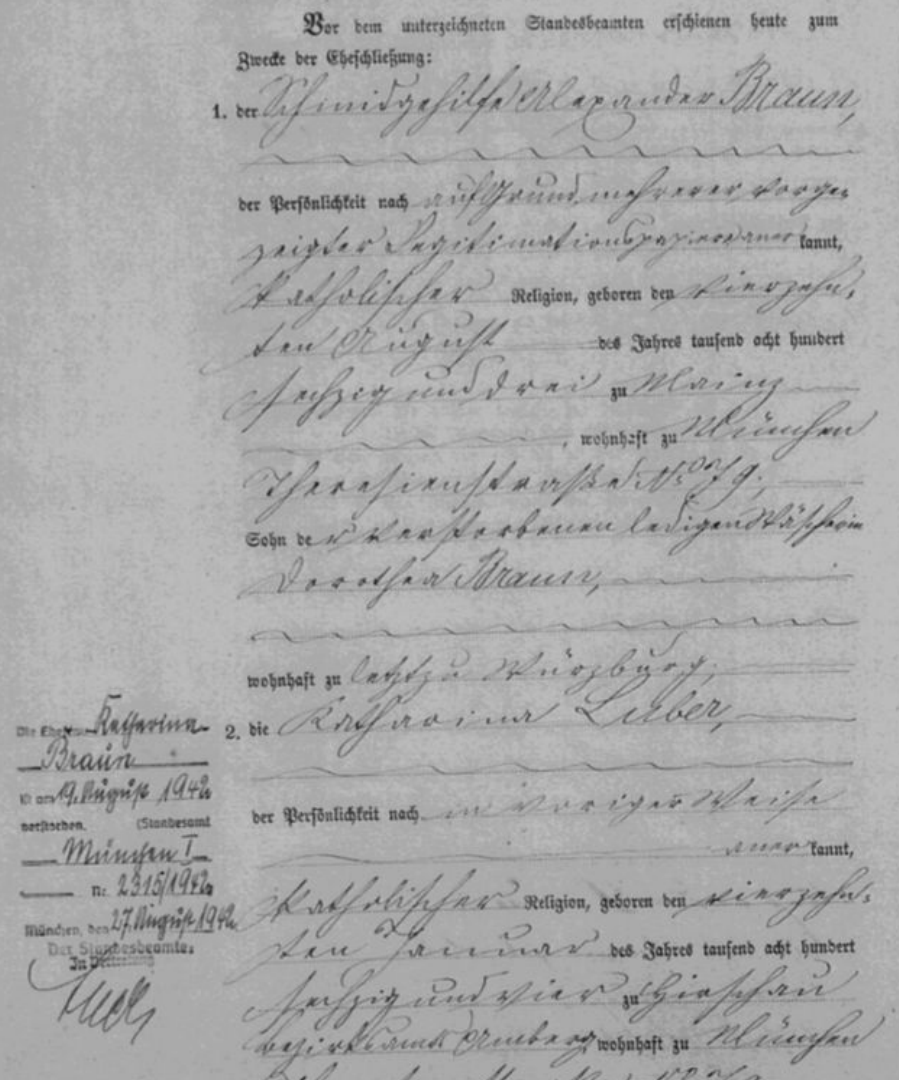 Vor dem unterzeichneten Standesbeamten erschienen heute zum
Zwecke der Eheschließung:
1. der Schmidgehilfe Alexander Braun,
der Persönlichkeit nach auf Grund mehrerer vorge-
zeigter Legitimationspapiere anerkannt,
katholischer Religion, geboren den vierzehn-
ten August des Jahres tausend acht hundert
sechzig und drei zu Mainz
, wohnhaft zu München
Theresienstraße No 79,
Sohn der verstorbenen ledigen Wäscherin
Dorothea Braun,
wohnhaft zu letzt zu Würzburg,
2. die Katharina Luber,
der Persönlichkeit nach in voriger Weise
anerkannt,
katholischer Religion, geboren den vierzehn-
ten Januar des Jahres tausend acht hundert
sechzig und vier zu Hirschau
Bezirksamts Amberg wohnhaft zu München
Die Ehefrau Katharina
Braun
ist am 19. August 1942
verstorben. (Standesamt
München I
Nr. 2315/1942
München, den 27. August 1942
Der Standesbeamte:
In Vertretung